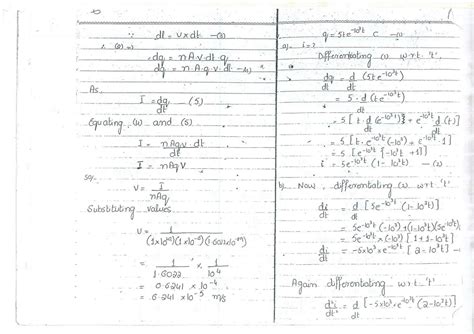 dl = v×dt —(3)
∴ (2) ⇒
dq = nAv·dt·q
dq = n·A·q·v·dt —(4)
As,
I = dq/dt —(5)
Equating (4) and (5)
I = nAqv·dt/dt
I = nAqv
so,
v = I/nAq
Substituting values
v = 1/
= 1/1.6022 × 1/10⁴
= 0.6241 × 10⁻⁴
= 6.241 × 10⁻⁵ m/s
q = 5te^-10³t C —(1)
a). i = ?
Differentiating (1) w.r.t. 't'
dq/dt = d/dt (5te^-10³t)
= 5·d/dt (te^-10³t)
= 5 [t·d/dt (e^-10³t) + e^-10³t d/dt (t)]
= 5 [t·e^-10³t (-10³) + e^-10³t·1]
= 5 [e^-10³t {-10³t + 1}]
i = 5e^-10³t (1-10³t) —(2)
b). Now, differentiating (2) w.r.t. 't'
di/dt = d/dt [5e^-10³t (1-10³t)]
= 5e^-10³t (-10³) + (1-10³t)5e^-10³t
= 5e^-10³t × (-10³) [1+1-10³t]
di/dt = -5×10³×e^-10³t [2-10³t] —
Again differentiating w.r.t. 't'
d²i/dt² = d/dt [-5×10³·e^-10³t (2-10³t)]